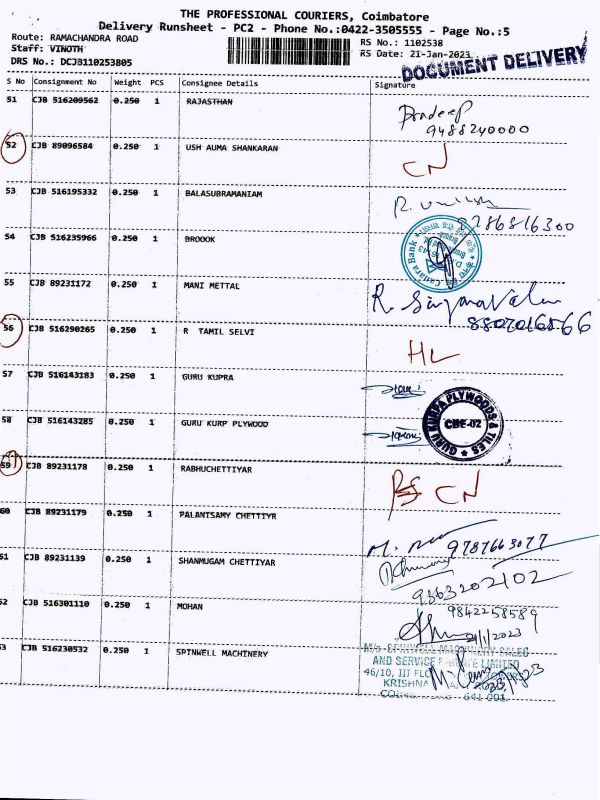 THE PROFESSIONAL COURIERS, Coimbatore
Delivery Runsheet - PC2 - Phone No.:0422-3505555 - Page No.:5
Route: RAMACHANDRA ROAD RS No.: 1102538
Staff: VINOTH RS Date: 21-Jan-2023
DRS No.: DCJB110253805
DOCUMENT DELIVERY
S No Consignment No Weight PCS Consignee Details Signature
51 CJB 516209562 0.250 1 RAJASTHAN Pradeep
9488240000
52 CJB 89096584 0.250 1 USH AUMA SHANKARAN CN
53 CJB 516195332 0.250 1 BALASUBRAMANIAM
9286816300
54 CJB 516235966 0.250 1 BROOOK Canara Bank
55 CJB 89231172 0.250 1 MANI METTAL R.
56 CJB 516290265 0.250 1 R TAMIL SELVI HL
57 CJB 516143283 0.250 1 GURU KUPRA
58 CJB 516143285 0.250 1 GURU KURP PLYWOOD
GURU KURPA PLYWOODS & TILES
CBE-02
59 CJB 89231178 0.250 1 RABHUCHETTIYAR CN
60 CJB 89231179 0.250 1 PALANISAMY CHETTIYR
9787663077
51 CJB 89231139 0.250 1 SHANMUGAM CHETTIYAR
9863202102
52 CJB 516301110 0.250 1 MOHAN 9842258589
53 CJB 516230532 0.250 1 SPINWELL MACHINERY
M/s SPINWELL MACHINERY SALES
AND SERVICE LIMITED
46/10, III
KRISHNA
641 001